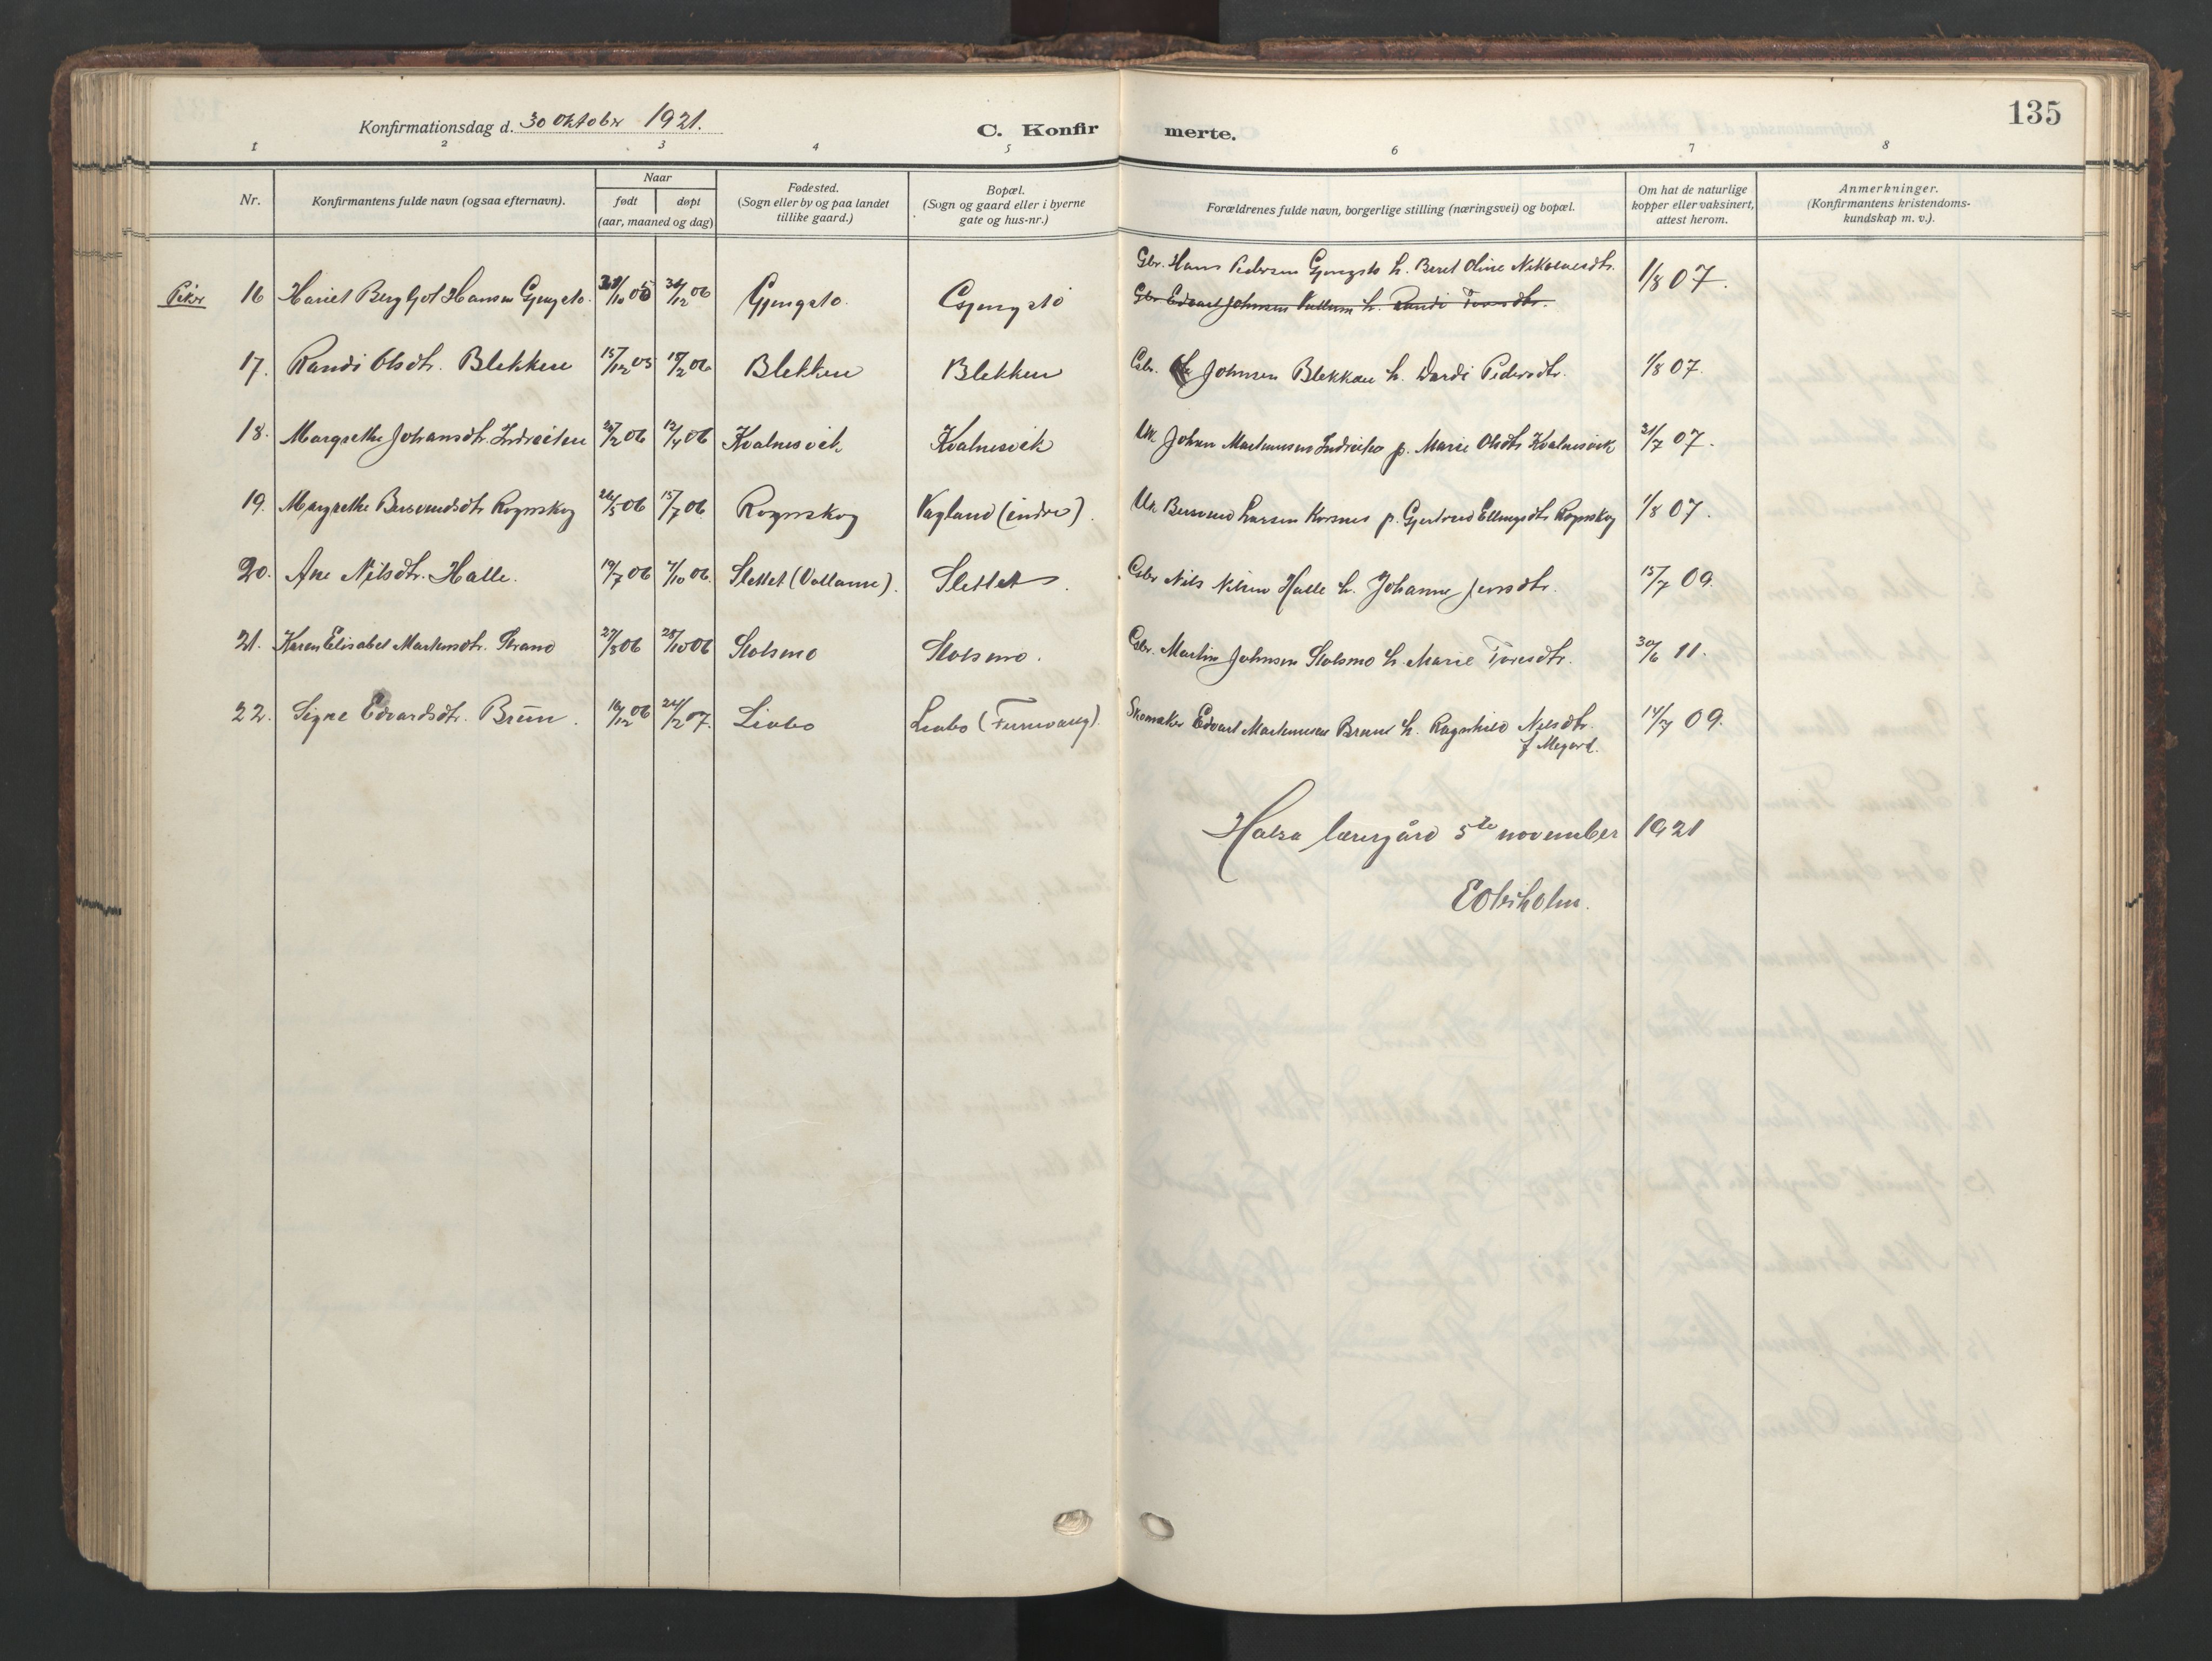 135
Konfirmationsdag d. 30 oktober 1921.
C. Konfir merte.
1 2 3 4 5 6 7 8
Nr.
Konfirmantens fulde navn (ogsaa efternavn).
Naar
født døpt
(aar, maaned og dag)
Fødested.
(Sogn eller by og paa landet
tillike gaard.)
Bopæl.
(Sogn og gaard eller i byerne
gate og hus-nr.)
Forældrenes fulde navn, borgerlige stilling (næringsvei) og bopæl.
Om hat de naturlige
kopper eller vaksinert,
attest herom.
Anmerkninger.
(Konfirmantens kristendoms-
kundskap m. v.).
Gbr. Hans Pedersen Gjengstø h. Beret Oline Nikolaisdtr.
Piker 16 Hariet Bergljot Hansen Gjengstø. /10 06 /12 06 Gjengstø. Gjengstø 1/8 07.
Gbr Edvart Johnsen Vullum h. Randi Toresdtr.
17. Randi Olsdtr. Blekken 15/12 05 18/2 06 Blekken Blekken Gbr. Johnsen Blekken h. Dardi Pedersdtr. 1/8 07.
18. Margrethe Johansdtr. Indreiten 25/2 06 12/4 06 Kvalnesvik Kvalnesvik Uk Johan Martinusen Indreiten p. Marie Olsdtr Kvalnesvik 21/7 07.
19. Margrethe Bersvendsdtr Rognskog 26/5 06 15/7 06 Rognskog Vagland (indre). Uk Bersvend Larsen Korsnes p. Gjertrud Ellingsdtr Rognskog 1/8 07.
20. Ane Nilsdtr. Halle. 19/7 06 7/10 06. Slettet (Vallanne). Slettet. Gbr Nils Nilsen Halle h. Johanne Jensdtr. 15/7 09.
21. Karen Elisabet Martinsdtr. Strand 27/8 06 28/10 06 Stolsmo Stolsmo. Gbr. Martin Johnsen Stolsmo h. Marie Toresdtr. 30/6 11.
22. Signe Edvardsdtr. Bruun. 16/12 06 24/2 07. Liabø Liabø (Furuvang). Skomaker Edvart Martinusen Bruun h. Ragnhild Nilsdtr. 14/7 09.
f. Megard.
Halsa lærergård 5te november 1921